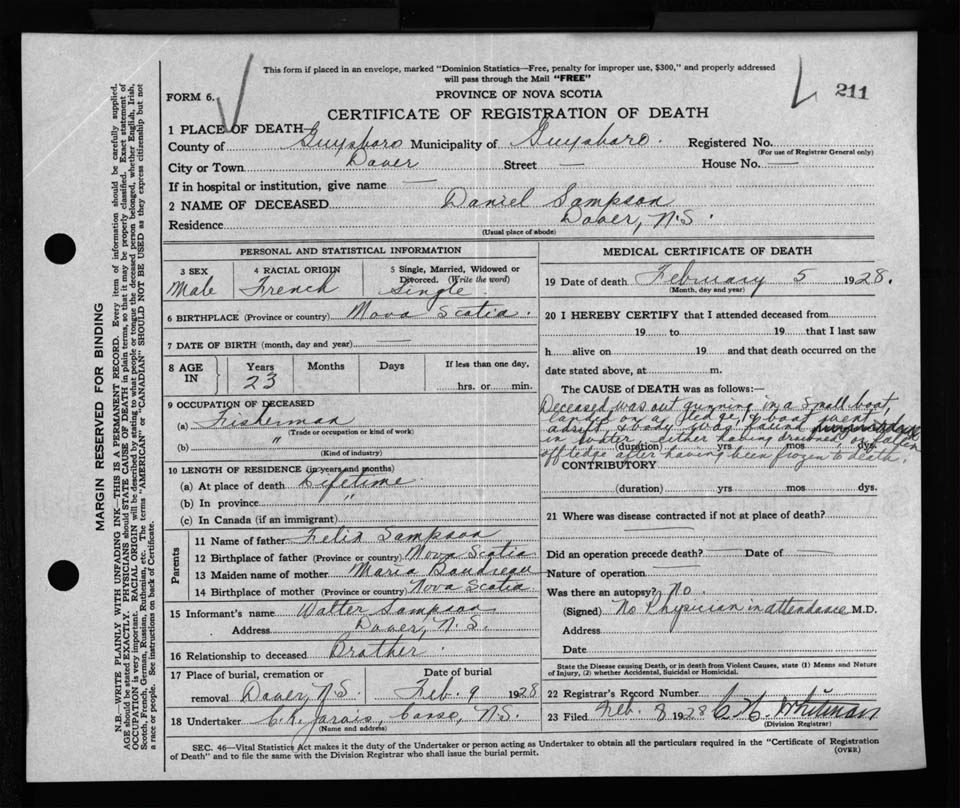 This form if placed in an envelope, marked "Dominion Statistics—Free, penalty for improper use, $300," and properly addressed
will pass through the Mail "FREE"
211
FORM 6.
PROVINCE OF NOVA SCOTIA
CERTIFICATE OF REGISTRATION OF DEATH
1 PLACE OF DEATH—
County of Guysboro Municipality of Guysboro. Registered No.
(For use of Registrar General only)
City or Town Dover Street — House No. —
If in hospital or institution, give name —
2 NAME OF DECEASED Daniel Sampson
Residence Dover, N.S.
(Usual place of abode)
PERSONAL AND STATISTICAL INFORMATION
3 SEX 4 RACIAL ORIGIN 5 Single, Married, Widowed or
Divorced. (Write the word)
Male French Single
6 BIRTHPLACE (Province or country) Nova Scotia.
7 DATE OF BIRTH (month, day and year) —
8 AGE IN Years Months Days If less than one day,
23 hrs. or min.
9 OCCUPATION OF DECEASED
(a) Fisherman
(Trade or occupation or kind of work)
(b) "
(Kind of industry)
10 LENGTH OF RESIDENCE (in years and months)
(a) At place of death Lifetime
(b) In province "
(c) In Canada (if an immigrant)
Parents
11 Name of father Felix Sampson
12 Birthplace of father (Province or country) Nova Scotia
13 Maiden name of mother Maria Boudreau
14 Birthplace of mother (Province or country) Nova Scotia
15 Informant's name Walter Sampson
Address Dover, N.S.
16 Relationship to deceased Brother.
17 Place of burial, cremation or Date of burial
removal Dover N.S. Feb. 9 1928
18 Undertaker C.R. Jarvis, Canso, N.S.
(Name and address)
MEDICAL CERTIFICATE OF DEATH
19 Date of death February 5 1928.
(Month, day and year)
20 I HEREBY CERTIFY that I attended deceased from
19 to 19 that I last saw
h alive on 19 and that death occurred on the
date stated above, at m.
The CAUSE of DEATH was as follows:—
Deceased was out gunning in a small boat,
landed on a ledge, & boat went
adrift & body was found
in water, either having drowned or fallen
(duration) yrs. mos. dys.
off ledge after having been frozen to death.
CONTRIBUTORY
(duration) yrs. mos. dys.
21 Where was disease contracted if not at place of death?
Did an operation precede death? — Date of —
Nature of operation —
Was there an autopsy? No.
(Signed) No Physician in attendance M.D.
Address
Date
State the Disease causing Death, or in death from Violent Causes, state (1) Means and Nature
of Injury, (2) whether Accidental, Suicidal or Homicidal.
22 Registrar's Record Number
23 Filed Feb. 8 1928 C.H. Whitman
(Division Registrar)
SEC. 46—Vital Statistics Act makes it the duty of the Undertaker or person acting as Undertaker to obtain all the particulars required in the "Certificate of Registration
of Death" and to file the same with the Division Registrar who shall issue the burial permit.
(OVER)
MARGIN RESERVED FOR BINDING
N.B.—WRITE PLAINLY WITH UNFADING INK—THIS IS A PERMANENT RECORD. Every item of information should be carefully supplied.
AGE should be stated EXACTLY. PHYSICIANS should STATE CAUSE OF DEATH in plain terms, so that it may be properly classified. Exact statement of
OCCUPATION is very important. RACIAL ORIGIN will be described by stating to what people or tongue the deceased person belonged, whether English, Irish,
Scotch, French, German, Russian, Ruthenian, etc. The terms "AMERICAN" or "CANADIAN" SHOULD NOT BE USED as they express citizenship but not
a race or people. See instructions on back of Certificate.